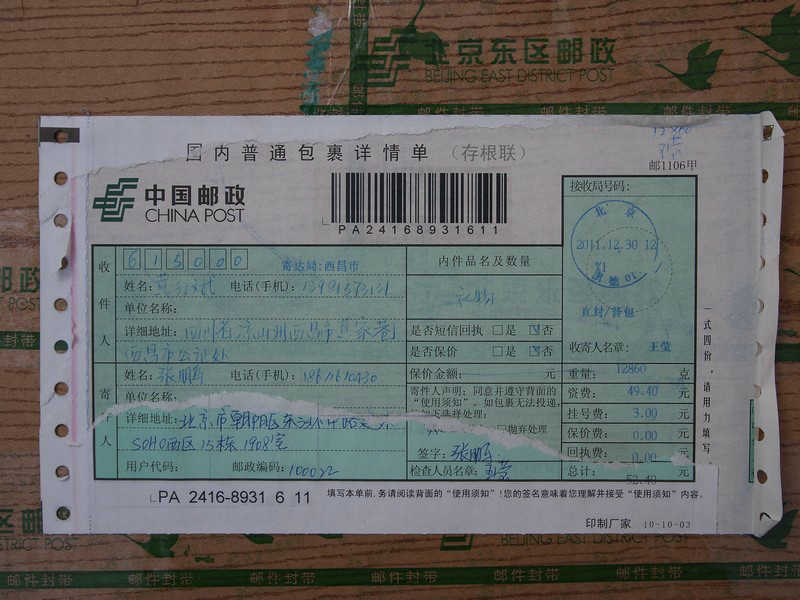 北京东区邮政
BEIJING EAST DISTRICT POST
邮件封带
邮件封带
国内普通包裹详情单 (存根联)
邮1106甲
中国邮政
CHINA POST
PA24168931611
接收局号码:
北京
2011.12.30 12
收件人
615000
寄达局:西昌市
内件品名及数量
姓名:
电话(手机):
单位名称:
详细地址: 四川省凉山州西昌市
西昌市公证处
是否短信回执 □是 否
是否保价 □是 否
收寄人名章: 王莹
保价金额: 元
重量: 12860 克
寄件人
姓名: 张鹏
电话(手机):
单位名称:
详细地址: 北京市朝阳区东三环中路
SOHO西区15栋1908室
用户代码:
邮政编码: 100022
寄件人声明:同意并遵守背面的
"使用须知"。如包裹无法投递,
如下选择处理:
□抛弃处理
签字: 张鹏
检查人员名章: 王莹
资费: 49.40 元
挂号费: 3.00 元
保价费: 0.00 元
回执费: 0.00 元
总计: 52.40 元
一式四份,请用力填写
PA 2416-8931 6 11
填写本单前,务请阅读背面的"使用须知"!您的签名意味着您理解并接受"使用须知"内容。
印制厂家 10-10-03
邮政
DISTRICT POST
BEIJING EAST DISTRICT POST
邮件封带
邮件封带
邮件封带
邮件封带
邮件封带